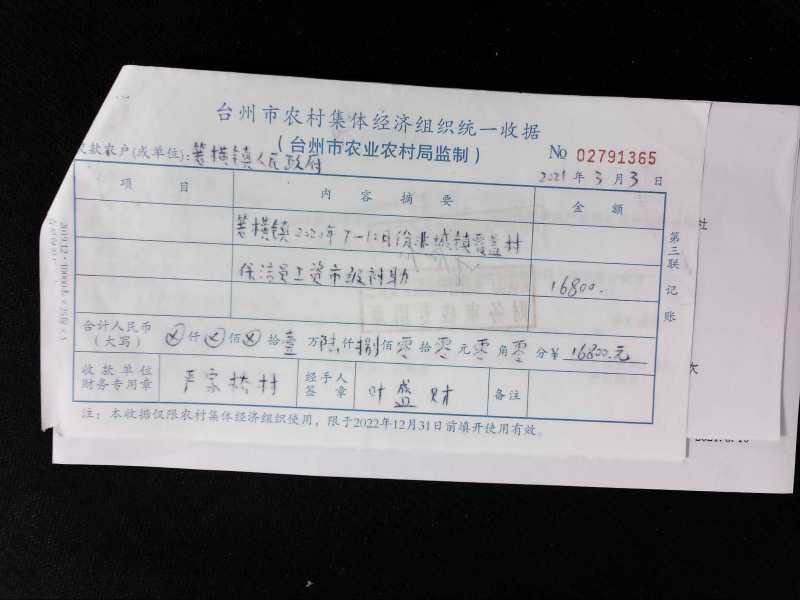 台州市农村集体经济组织统一收据
(台州市农业农村局监制)
No 02791365
款农户(或单位):箬横镇人民政府
2021年3月3日
项目 内容摘要 金额
箬横镇2020年7-12月份非城镇覆盖村
保洁员工资市级补助 16800.
合计人民币(大写) ⊗仟⊗佰⊗拾壹万陆仟捌佰零拾零元零角零分¥ 16800.元
收款单位财务专用章 严家桥村 经手人签章 叶盛财 备注
注:本收据仅限农村集体经济组织使用,限于2022年12月31日前填开使用有效。
第三联 记账
社
大